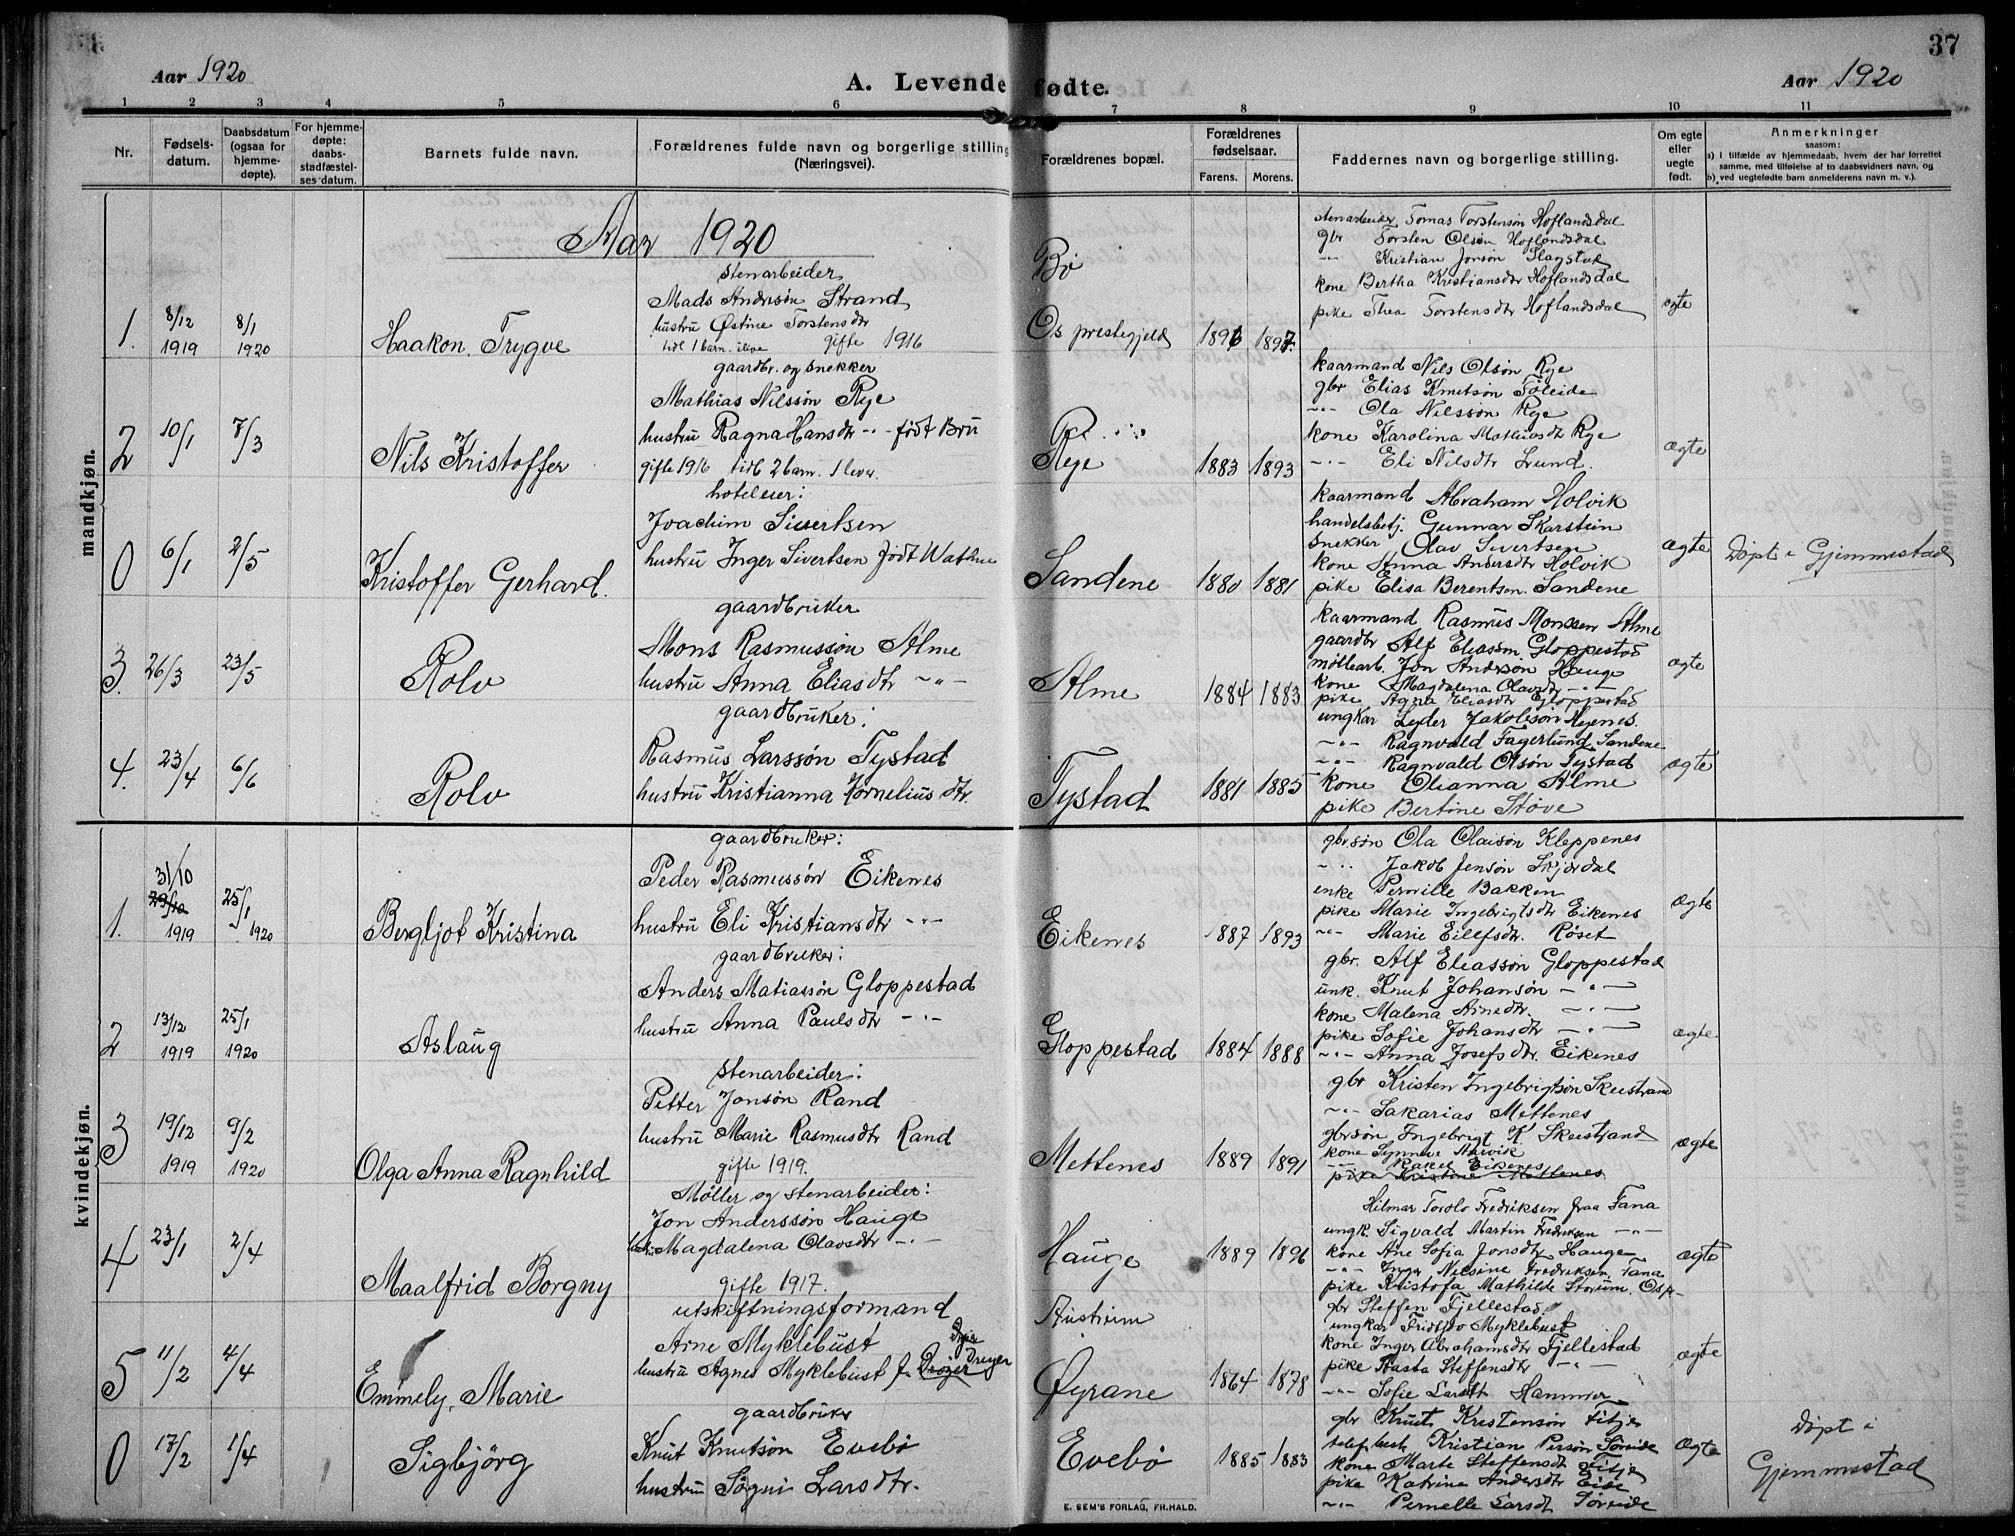 37
Aar 1920
A. Levende fødte.
Aar 1920
1 2 3 4 5 6 7 8 9 10 11
Nr.
Fødsels-
datum.
Daabsdatum
(ogsaa for
hjemme-
døpte).
For hjemme-
døpte:
daabs-
stadfæstel-
ses-datum.
Barnets fulde navn.
Forældrenes fulde navn og borgerlige stilling
(Næringsvei).
Forældrenes bopæl.
Forældrenes
fødselsaar.
Farens. Morens.
Faddernes navn og borgerlige stilling.
Om egte
eller
uegte
født.
Anmerkninger
saasom:
a) i tilfælde av hjemmedaab, hvem der har forrettet
samme, med tilføielse af to daabsvidners navn, og
b) ved uegtefødte barn anmelderens navn m. v.).
Aar 1920
mandkjøn.
1. 8/12 1919 8/1 1920
Haakon Trygve
stenarbeider
Mads Andersøn Strand
hustru Østine Torstensdtr
tidl 1 barn ilive gifte 1916
Bø
Os prestegjeld
1897.
stenarbeider Tomas Torstensøn Hoflandsdal
gbr Torsten Olsøn Hoflandsdal
-"- Kristian Jonsøn Slagstad
kone Bertha Kristiansdtr Hoflandsdal
pike Thea Torstensdtr Hoflandsdal
ægte
2 10/1 7/3
Nils Kristoffer
gaardbr. og snekker
Mathias Nilssøn Rye
hustru Ragna Hansdtr -"- født Bru
gifte 1916 tidl 2 barn. 1 lever.
Rye
1883 1893
kaarmand Nils Olsøn Rye
gbr Elias Knutsøn Føleide
-"- Ola Nilssøn Rye
kone Karolina Mathiasdtr Rye
-"- Eli Nilsdtr Lund.
ægte
0 6/1 2/5
Kristoffer Gerhard.
hoteleier:
Joachim Sivertsen
hustru Inger Sivertsen født Wathne
Sandene
1880 1881
kaarmand Abraham Holvik
handelsbetj. Gunnar Skarstein
snekker Olav Sivertsen
kone Anna Andersdtr Holvik
pike Elisa Berentsen Sandene
ægte
Døpt i Gjemmestad
3. 26/3 23/5
Rolv
gaardbruker
Mons Rasmussøn Alme
hustru Anna Eliasdtr -"-
Alme
1884 1883
kaarmand Rasmus Monssen Alme
gaardbr Alf Eliassøn Gloppestad
møllearb. Jon Andersøn Hauge
kone Magdalena Olavsdtr -"-
pike Agnta Eliasdtr Gloppestad
ægte
4. 23/4 6/6
Rolv
gaardbruker:
Rasmus Larssøn Tystad
hustru Kristianna Kornelius dtr.
Tystad
1881 1885
ungkar Lyder Jakobsøn Hyenes.
-"- Ragnvald Fagerlund Sandene
-"- Ragnvald Olsøn Tystad
kone Olianna Alme
pike Bertine Støve
ægte
kvindekjøn.
1. 31/10 29/10 1919 25/1 1920
Bergljot Kristina
gaardbruker:
Peder Rasmussøn Eikenes
hustru Eli Kristiansdtr -"-
Eikenes
1887 1893
gbr.søn Ola Olaisøn Kleppenes
-"- Jakob Jensøn Skjerdal
enke Pernille Bakken
pike Marie Ingebrigtsdtr Eikenes
-"- Marie Eilefsdtr. Røset
ægte
2 13/12 1919 25/1 1920
Aslaug
gaardbruker:
Anders Matiassøn Gloppestad
hustru Anna Paulsdtr -"-
Gloppestad
1884 1888
gbr. Alf Eliassøn Gloppestad
unk. Knut Johansøn -"-
kone Malena Arnedtr. -"-
pike Sofie Johansdtr -"-
-"- Anna Josefsdtr. Eikenes
ægte
3 19/12 1919 9/2 1920
Olga Anna Ragnhild
stenarbeider:
Petter Jonsøn Rand
hustru Marie Rasmusdtr Rand
gifte 1919.
Mettenes
1889 1891
gbr Kristen Ingebrigtsøn Skeistrand
-"- Sakarias Mettenes
gbrsøn Ingebrigt K. Skeistrand
kone Synneve Aarvik
-"- Rakel Eikenes
pike Kristine Mettenes
ægte
4 23/1 2/4
Maalfrid Borgny
Møller og stenarbeider:
Jon Anderssøn Hauge
hustru Magdalena Olavsdtr -"-
gifte 1917.
Hauge
1889 1896
Hilmar Torolv Fredriksen fraa Fana
ungk. Sigvald Martin Fredriksen -"-
kone Ane Sofia Jonsdtr Hauge
-"- Inga Nilsine Fredriksen Fana
pike Kristofa Mathilde Storum. Osp-
ægte
5 11/2 4/4
Emmely, Marie
utskiftningsformand
Arne Myklebust
hustru Agnes Myklebust f. Drøjer Dreyer
Austrheim
Øyrane
1864 1878
gbr Steffen Fjellestad
ungkar Fridtjov Myklebust
kone Inger Abrahamsdtr Fjellestad
pike Basta Steffensdtr -"-
-"- Sofie Larsdtr Hammer
ægte
0 17/2 1/4
Sigbjörg
gaardbruker
Knut Knutsøn Evebø
hustru Søgni Larsdtr.
Evebø
1885 1883
gbr Knut Kristensøn Fitje
telef.besti Kristian Persøn Søreide
kone Marte Steffensdtr Fitje
pike Katrine Andersdtr Eide
-"- Pernelle Larsdt Søreide
ægte
Døpt i
Gjemmestad
E. SEM'S FORLAG, FR.HALD.